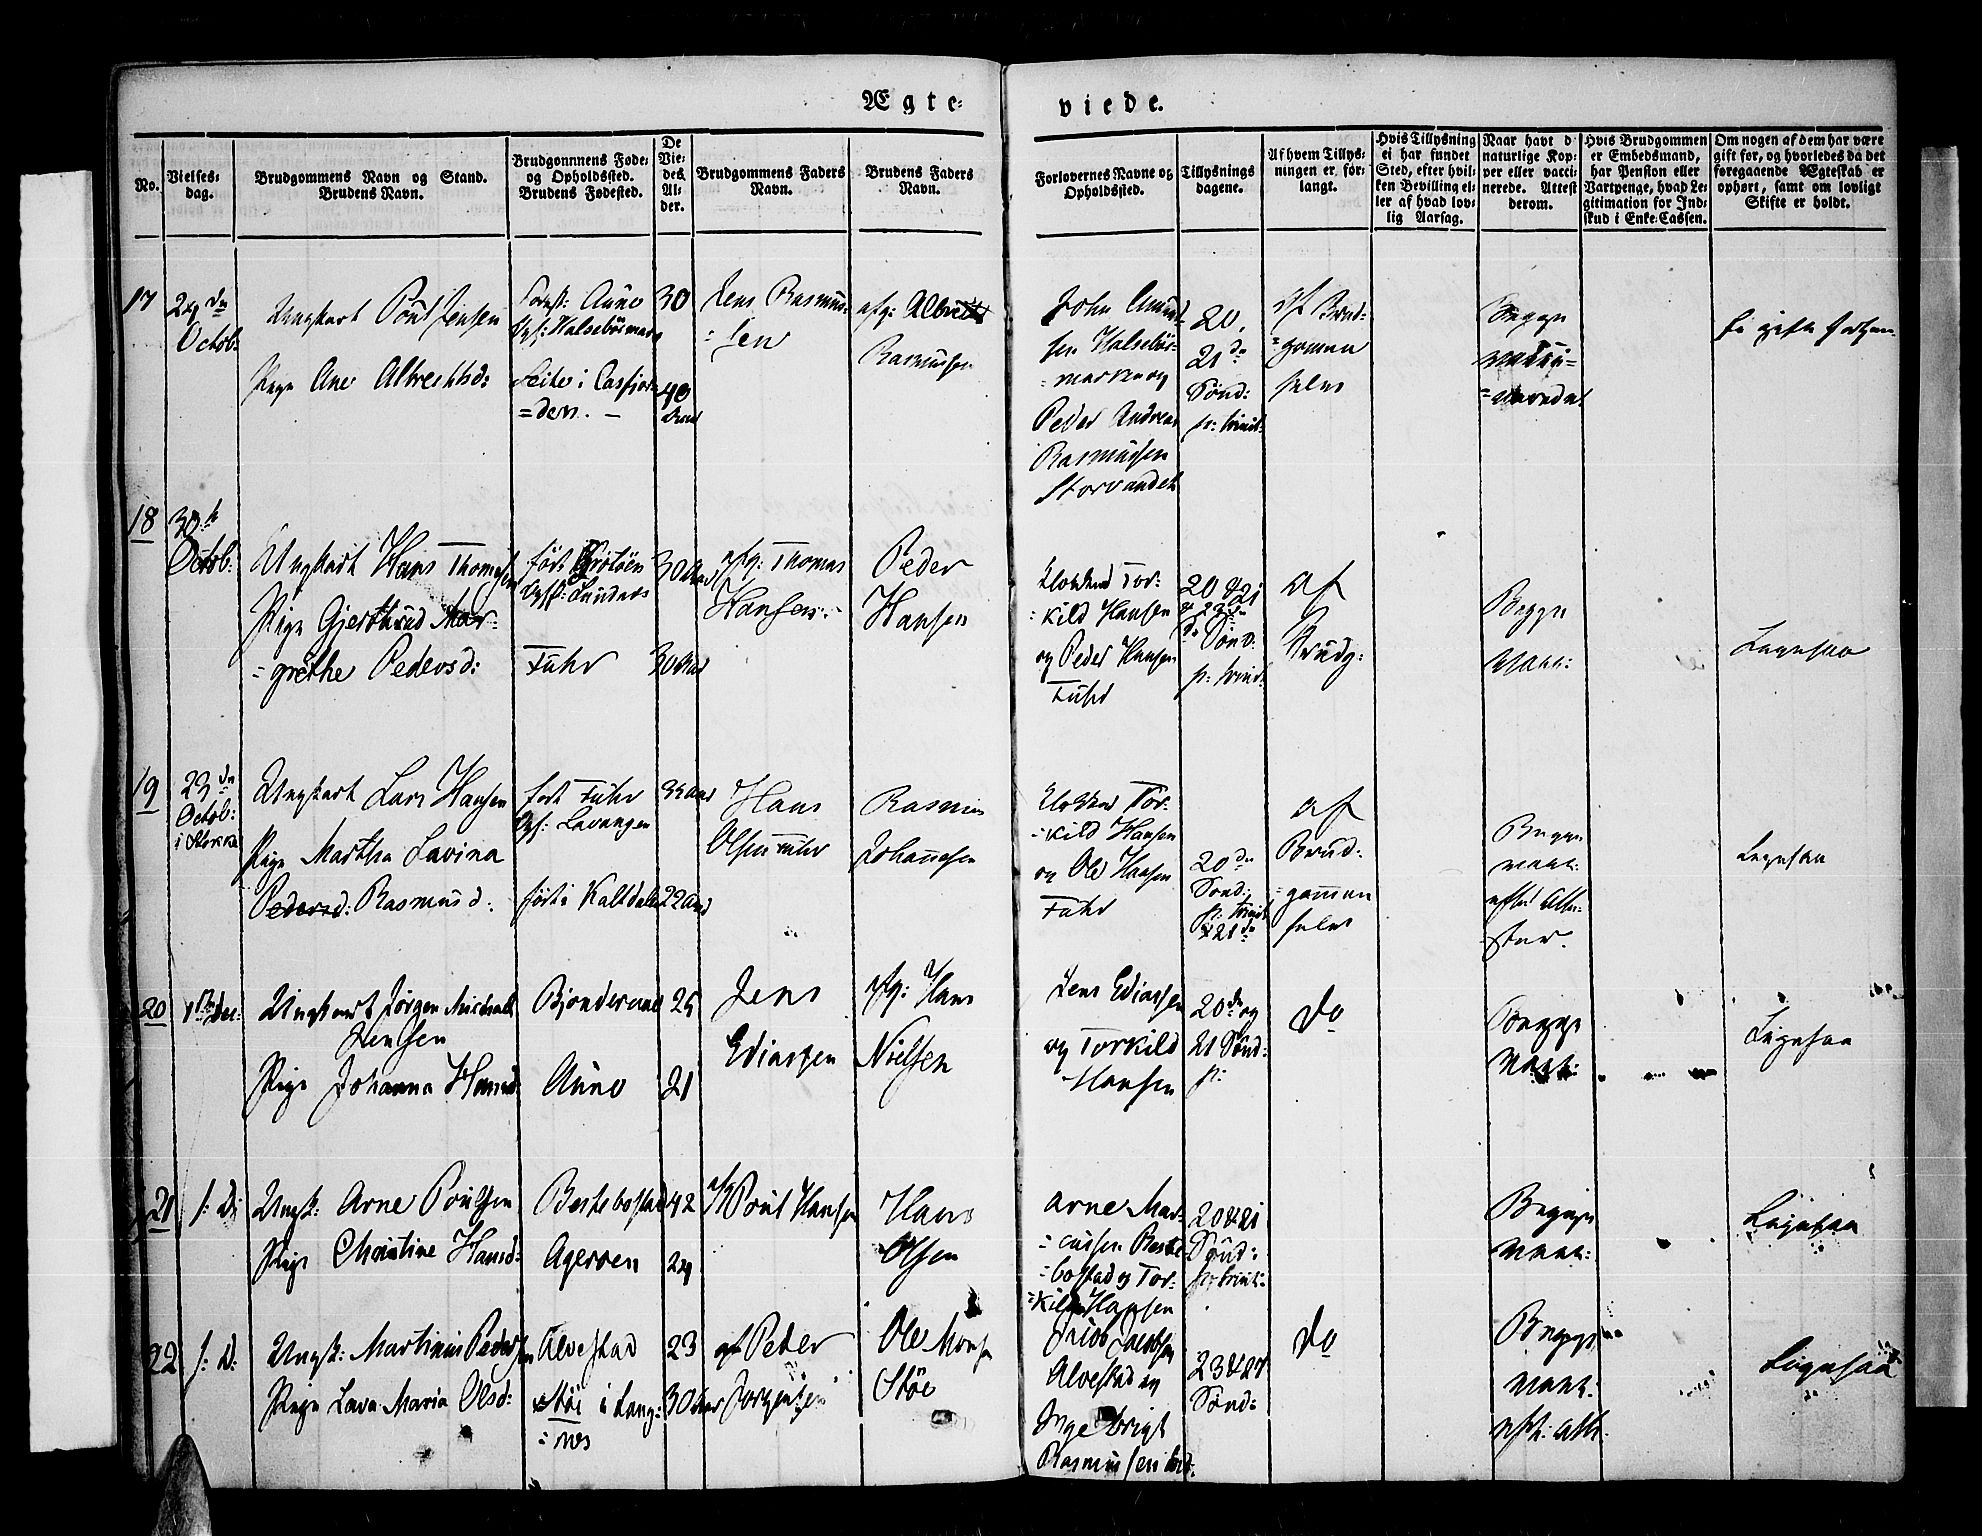 Ægte-
viede.
No.
Vielses-
dag.
Brudgommens Navn og Stand.
Brudens Navn.
Brudgommens Føde-
og Opholdssted.
Brudens Fødested.
De
Vie-
des
Al-
der.
Brudgommens Faders
Navn.
Brudens Faders
Navn.
Forlovernes Navne og
Opholdssted.
Tillysnings
dagene.
Af hvem Tillys-
ningen er for-
langt.
Hvis Tillysning
ei har fundet
Sted, efter hvil-
ken Bevilling el-
ler af hvad lov-
lig Aarsag.
Naar havt d
naturlige Kop-
per eller vacci-
nerede. Attest
derom.
Hvis Brudgommen
er Embedsmand,
har Pension eller
Vartpenge, hvad Le-
gitimation for Ind-
skud i Enke-Cassen.
Om nogen af dem har være
gift før, og hvorledes da det
foregaaende Ægteskab er
ophørt, samt om lovligt
Skifte er holdt.
17
Octob:
Ungkart Poul Jensen
Pige Ane Albrechtsd:
Opf: Halsebøemark
= den. -
30
40
Jens Rasmus-
= sen
afg: Albrecht
Rasmussen
John Amund-
sen Halsebø-
= marken og
Peder Andreas
Rasmussen
Storvandet
20.
21 de
Sønd:
p: trinit:
af Brud-
= gommen
selv
Begge
18
30te
Octob:
Ungkart Hans Thomesen
Pige Gjerthrud Mar-
= grethe Pedersd:
Fuhr
30 Aar
30 Aar
afg: Thomas
Hansen
Peder
Hansen
Tor-
= kild Hansen
og Peder Hansen
Fuhr
20 & 21
Sønd:
p: trinit:
af
Brudg:
Begge
vacc:
Ligesaa
19
23 de
Octob:
Ungkart Lars Hansen
Pige Martha Lavina
Pedersd: Rasmusd.
født Fuhr
Opf: Lavangen
født i Kaltdale
22 Aar
Hans
Olsen Fuhr
Rasmus
Johannesen
Tor-
= kild Hansen
og Ole Hansen
Fuhr
20 de
Sønd:
p: trinit
& 21 de
af
Brud-
= gommen
selv
Begge
vacc:
efter Atte-
ster.
Ligesaa
20
Ungkart Jørgen Michael
Jensen
Pige Johanna Hansd:
Aune
25
21
Jens
Ediassen
afg: Hans
Nielsen
Jens Ediassen
og Torkild
Hansen
20 de og
21 Sønd:
p:
do
Begge
vacc:
Ligesaa
21
f: D:
Ungk: Arne Poulsen
Pige Christine Hansd:
Bestebostad
Ageroen
42
Poul Hansen
Hans
Olsen
Arne Mar-
= cussen Beste
= bostad og Tor-
= kild Hansen
20 & 21
Sønd:
p: trinit:
Begge
vacc:
Ligesaa
22
f: D:
Ungk: Martinus Pedersen
Pige Lava Maria Olsd:
Alvestad
Støe i Lang-
= nes
23
30 Aar
af Peder
Jørgensen
Ole Monsen
Støe
Jacob Jacobsen
Alvestad og
Ingebrigt
Rasmussen
23 & 24
Sønd:
do
Begge
vacc:
Ligesaa